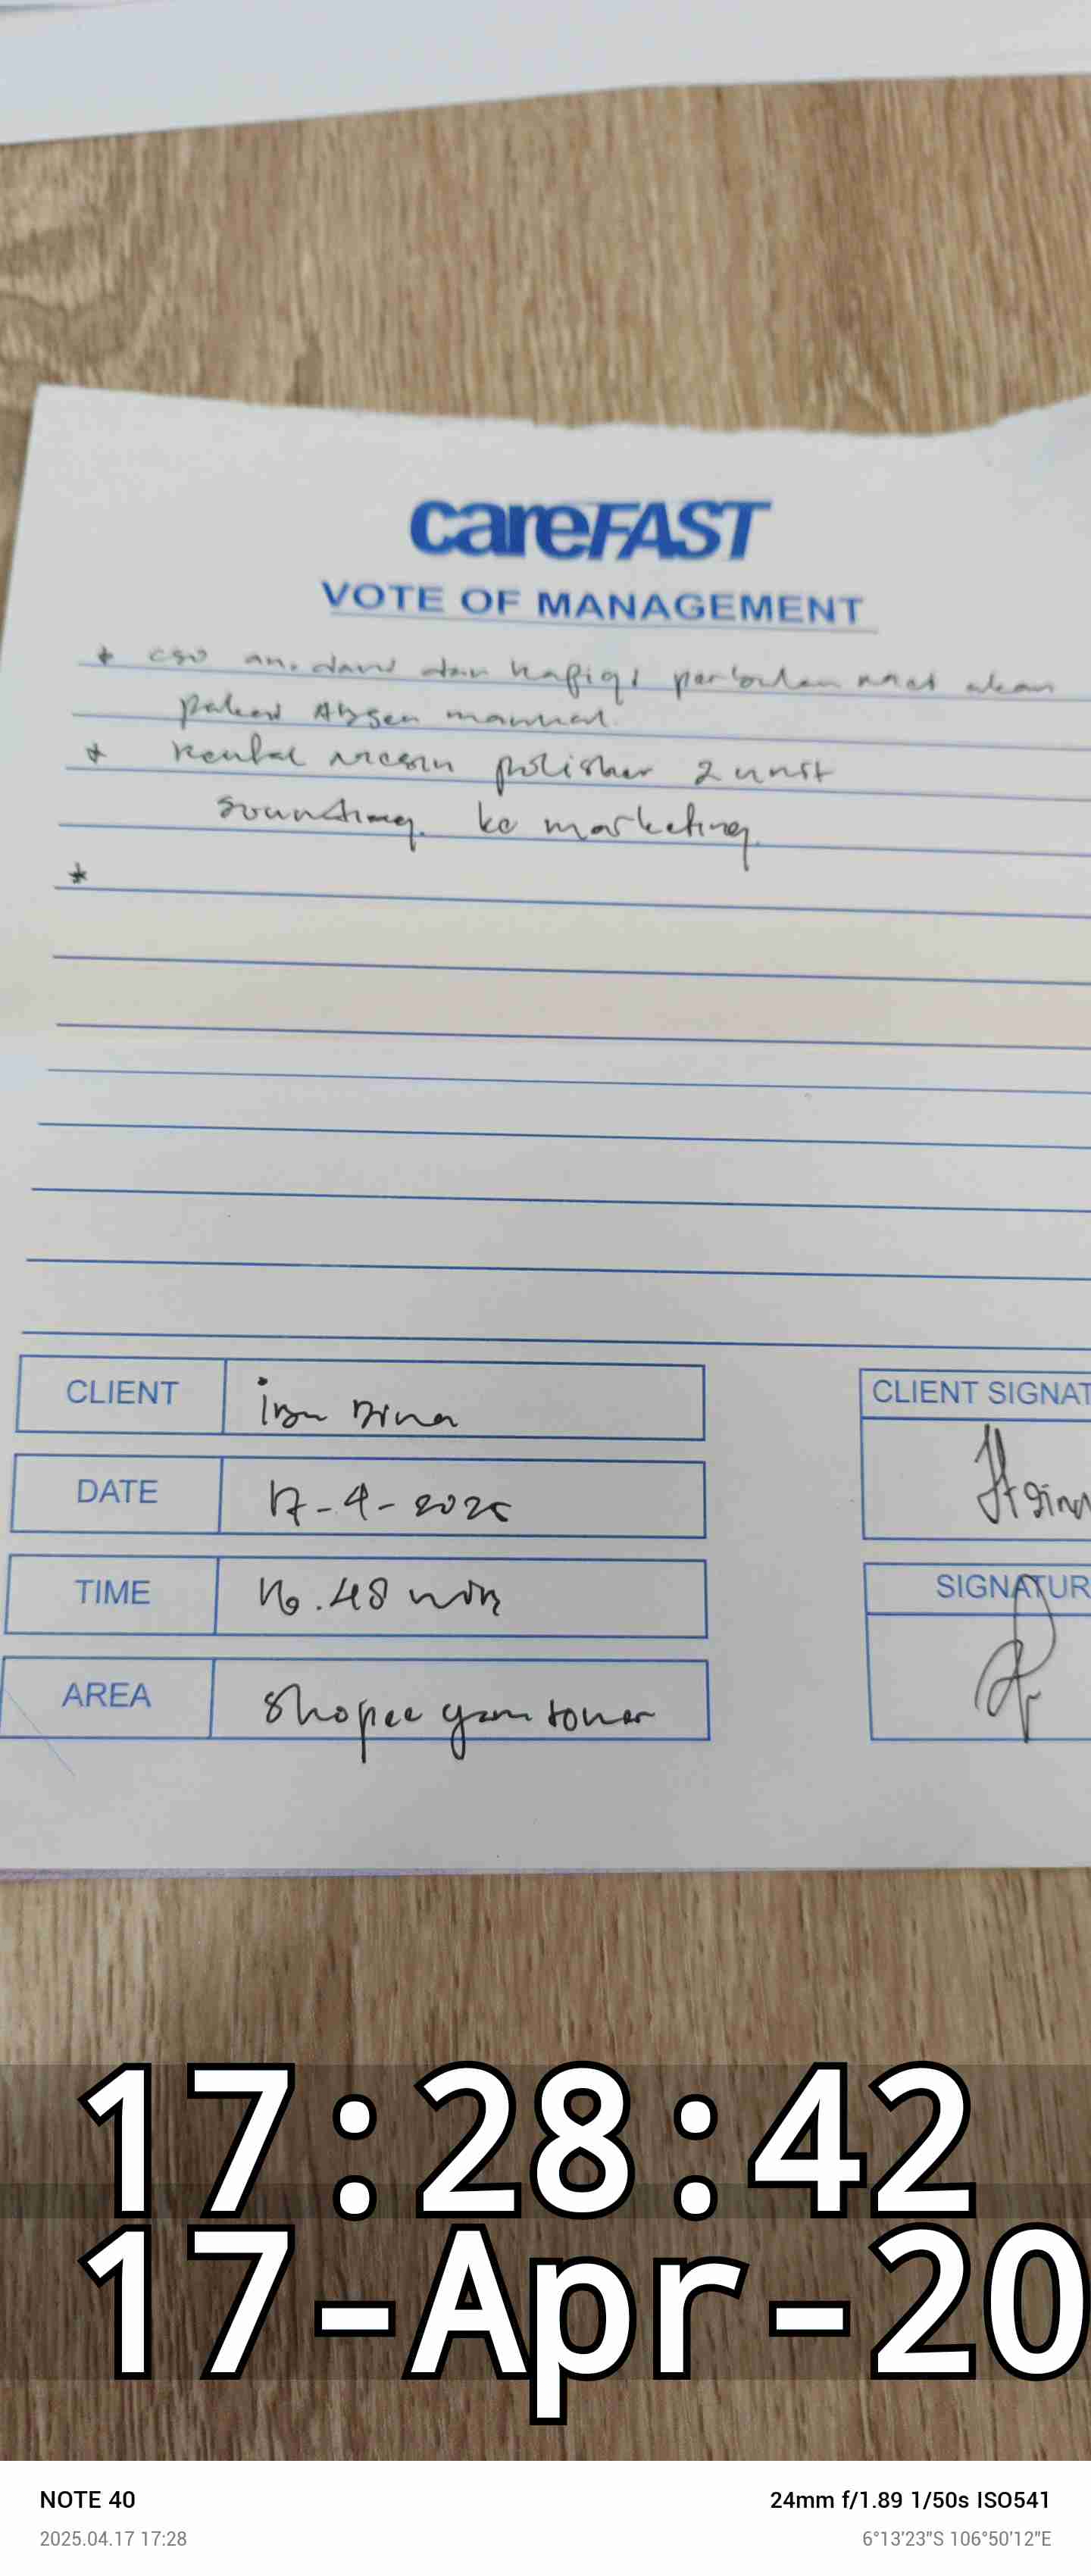 careFAST
VOTE OF MANAGEMENT
* CSO an. dani dan hafiqi perbulan mei akan
pakai Absen manual.
* Rental mesin polisher 2 unit
sounding. ke marketing.
*
CLIENT ibu Dina
CLIENT SIGNAT
DATE 17-4-2025
TIME 16.48 WIB
SIGNATUR
AREA Shopee gama tower
17:28:42
17-Apr-20
NOTE 40
24mm f/1.89 1/50s ISO541
2025.04.17 17:28
6°13'23"S 106°50'12"E